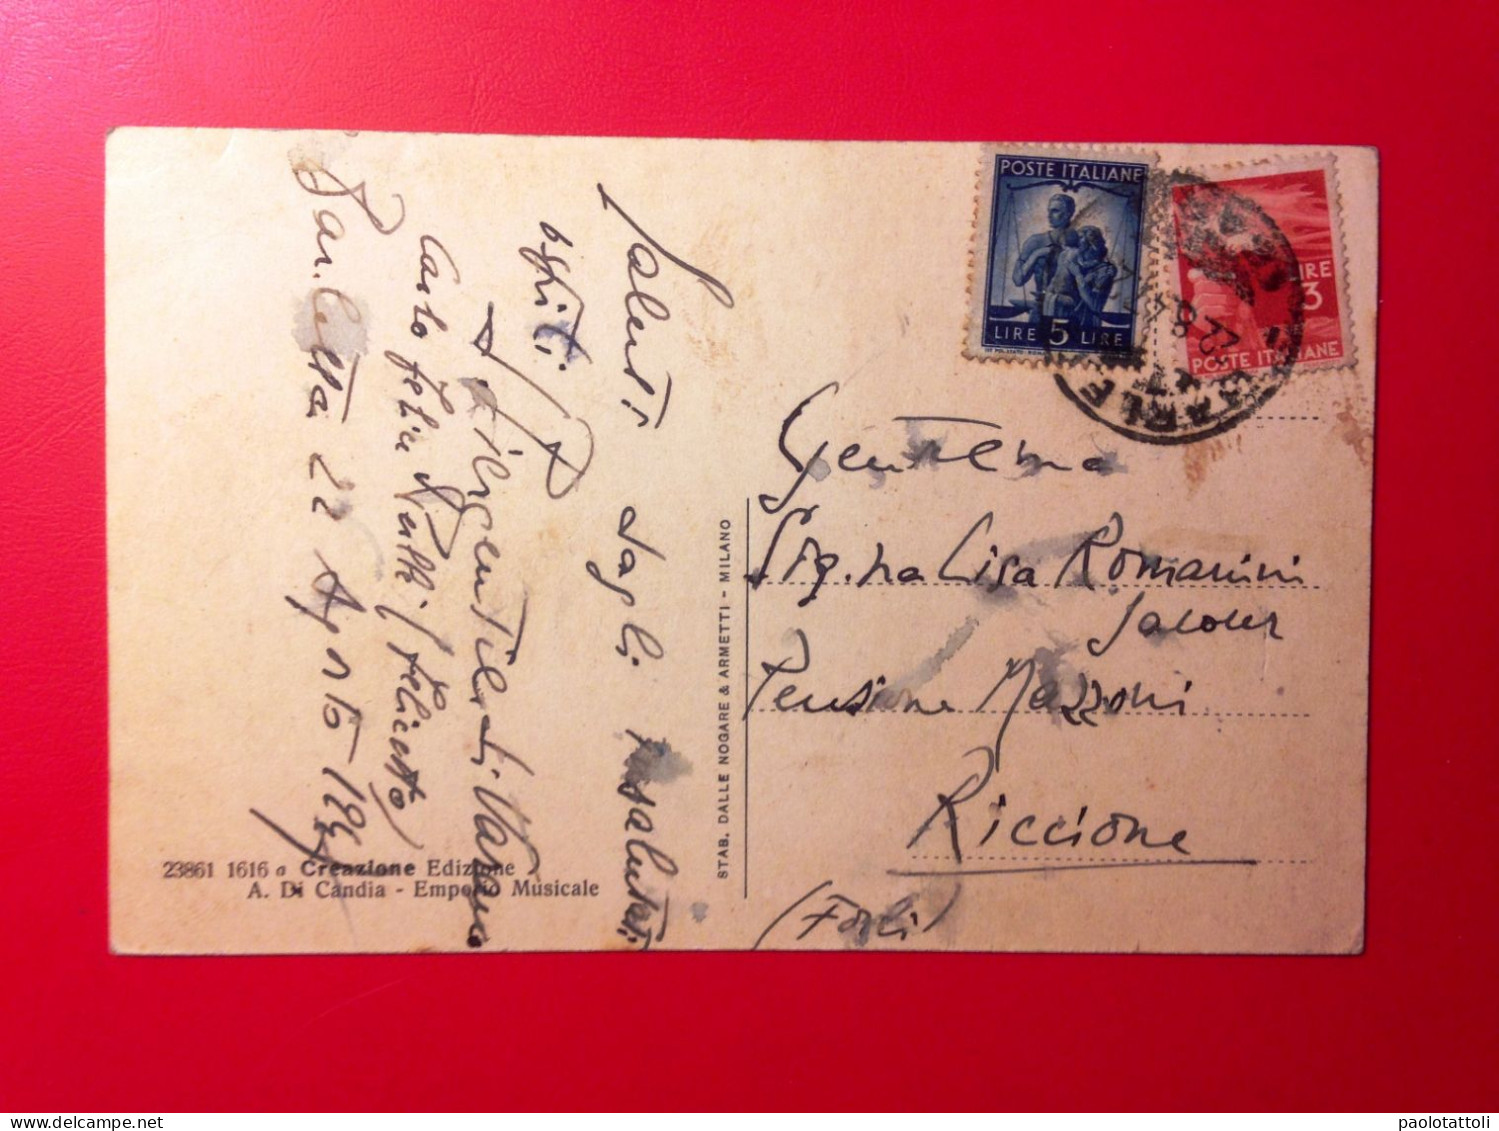 Saluti dagli risalutati
ospiti.
Carlo Felice
Barletta 22 Agosto 194
23861 1616 a Creazione Edizione
A. Di Candia - Emporio Musicale
STAB. DALLE NOGARE & ARMETTI - MILANO
POSTE ITALIANE
LIRE 5 LIRE
LIRE
3
POSTE ITALIANE
22 8 4
BARLETTA
Gentilma
Sig.na Lisa Romanini
Pensione Mazzoni
Riccione
(Forlì)
paolotattoli